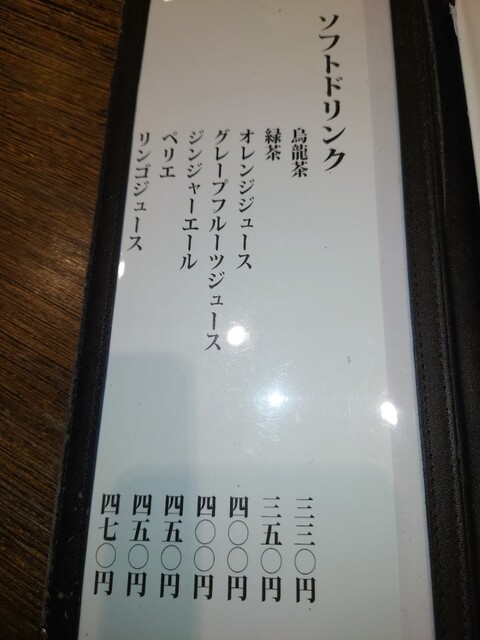 ソフトドリンク
烏龍茶 三三〇円
緑茶 三五〇円
オレンジジュース 四〇〇円
グレープフルーツジュース 四〇〇円
ジンジャーエール 四五〇円
ペリエ 四五〇円
リンゴジュース 四七〇円